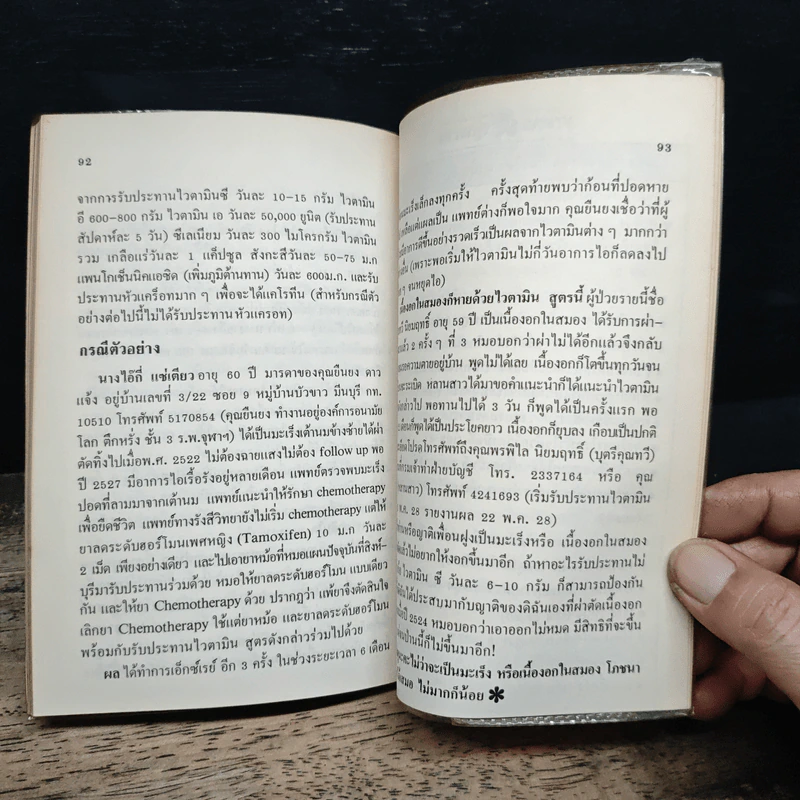 92
จากการรับประทานไวตามินซี วันละ 10-15 กรัม ไวตามิน
อี 600-800 กรัม ไวตามิน เอ วันละ 50,000 ยูนิต (รับประทาน
สัปดาห์ละ 5 วัน) ซีเลเนียม วันละ 300 ไมโครกรัม ไวตามิน
รวม เกลือแร่วันละ 1 แค็ปซูล สังกะสีวันละ 50-75 ม.ก
แพนโกเช็นนิคแอซิด (เพิ่มภูมิต้านทาน) วันละ 600ม.ก. และรับ
ประทานหัวแคร็อทมาก ๆ เพื่อจะได้แคโรทีน (สำหรับกรณีตัว
อย่างต่อไปนี้ไม่ได้รับประทานหัวแครอท)
กรณีตัวอย่าง
นางไอ๊กี่ แซ่เตียว อายุ 60 ปี มารดาของคุณยืนยง ดาว
แจ้ง อยู่บ้านเลขที่ 3/22 ซอย 9 หมู่บ้านบัวขาว มีนบุรี กท.
10510 โทรศัพท์ 5170854 (คุณยืนยง ทำงานอยู่องค์การอนามัย
โลก ตึกหรั่ง ชั้น 3 ร.พ.จุฬาฯ) ได้เป็นมะเร็งเต้านมข้างซ้ายได้ผ่า
ตัดทิ้งไปเมื่อพ.ศ. 2522 ไม่ต้องฉายแสงไม่ต้อง follow up พอ
ปี 2527 มีอาการไอเรื้อรังอยู่หลายเดือน แพทย์ตรวจพบมะเร็ง
ปอดที่ลามมาจากเต้านม แพทย์แนะนำให้รักษา chemotherapy
เพื่อยืดชีวิต แพทย์ทางรังสีวิทยายังไม่เริ่ม chemotherapy แต่ให้
ยาลดระดับฮอร์โมนเพศหญิง (Tamoxifen) 10 ม.ก วันละ
2 เม็ด เพียงอย่างเดียว และไปเอายาหม้อที่หมอแผนปัจจุบันที่สิงห์-
บุรีมารับประทานร่วมด้วย หมอให้ยาลดระดับฮอร์โมน แบบเดียว
กัน และให้ยา Chemotherapy ด้วย ปรากฏว่า แพ้ยาจึงตัดสินใจ
เลิกยา Chemotherapy ใช้แต่ยาหม้อ และยาลดระดับฮอร์โมน
พร้อมกับรับประทานไวตามิน สูตรดังกล่าวร่วมไปด้วย
ผล ได้ทำการเอ็กซ์เรย์ อีก 3 ครั้ง ในช่วงระยะเวลา 6 เดือน
93
มะเร็งเล็กลงทุกครั้ง ครั้งสุดท้ายพบว่าก้อนที่ปอดหาย
เหลือแต่แผลเป็น แพทย์ต่างก็พอใจมาก คุณยืนยงเชื่อว่าที่ผู้
มีอาการดีขึ้นอย่างรวดเร็วเป็นผลจากไวตามินต่าง ๆ มากกว่า
(เพราะพอเริ่มให้ไวตามินไม่กี่วันอาการไอก็ลดลงไป
ๆ จนหยุดไอ)
เนื้องอกในสมองก็หายด้วยไวตามิน สูตรนี้ ผู้ป่วยรายนี้ชื่อ
นิยมฤทธิ์ อายุ 59 ปี เป็นเนื้องอกในสมอง ได้รับการผ่า-
แล้ว 2 ครั้ง ๆ ที่ 3 หมอบอกว่าผ่าไม่ได้อีกแล้วจึงกลับ
รอความตายอยู่บ้าน พูดไม่ได้เลย เนื้องอกก็โตขึ้นทุกวันจน
จะระเบิด หลานสาวได้มาขอคำแนะนำก็ได้แนะนำไวตามิน
กล่าวไป พอทานไปได้ 3 วัน ก็พูดได้เป็นครั้งแรก พอ
เดือนก็พูดได้เป็นประโยคยาว เนื้องอกก็ยุบลง เกือบเป็นปกติ
โปรดโทรศัพท์ถึงคุณพรพิไล นิยมฤทธิ์ (บุตรีคุณทวี)
กรมเจ้าท่าฝ่ายบัญชี โทร. 2337164 หรือ คุณ
หลานสาว) โทรศัพท์ 4241693 (เริ่มรับประทานไวตามิน
พ.ค. 28 รายงานผล 22 พ.ค. 28)
หรือญาติเพื่อนฝูงเป็นมะเร็งหรือ เนื้องอกในสมอง
แล้วไม่อยากให้งอกขึ้นมาอีก ถ้าหาอะไรรับประทานไม่
ไวตามิน ซี วันละ 6-10 กรัม ก็สามารถป้องกัน
ได้ประสบมากับญาติของดิฉันเองที่ผ่าตัดเนื้องอก
ปี 2524 หมอบอกว่าเอาออกไม่หมด มีสิทธิที่จะขึ้น
ป่านนี้ก็ไม่ขึ้นมาอีก!
ไม่ว่าจะเป็นมะเร็ง หรือเนื้องอกในสมอง โภชนา
เสมอ ไม่มากก็น้อย